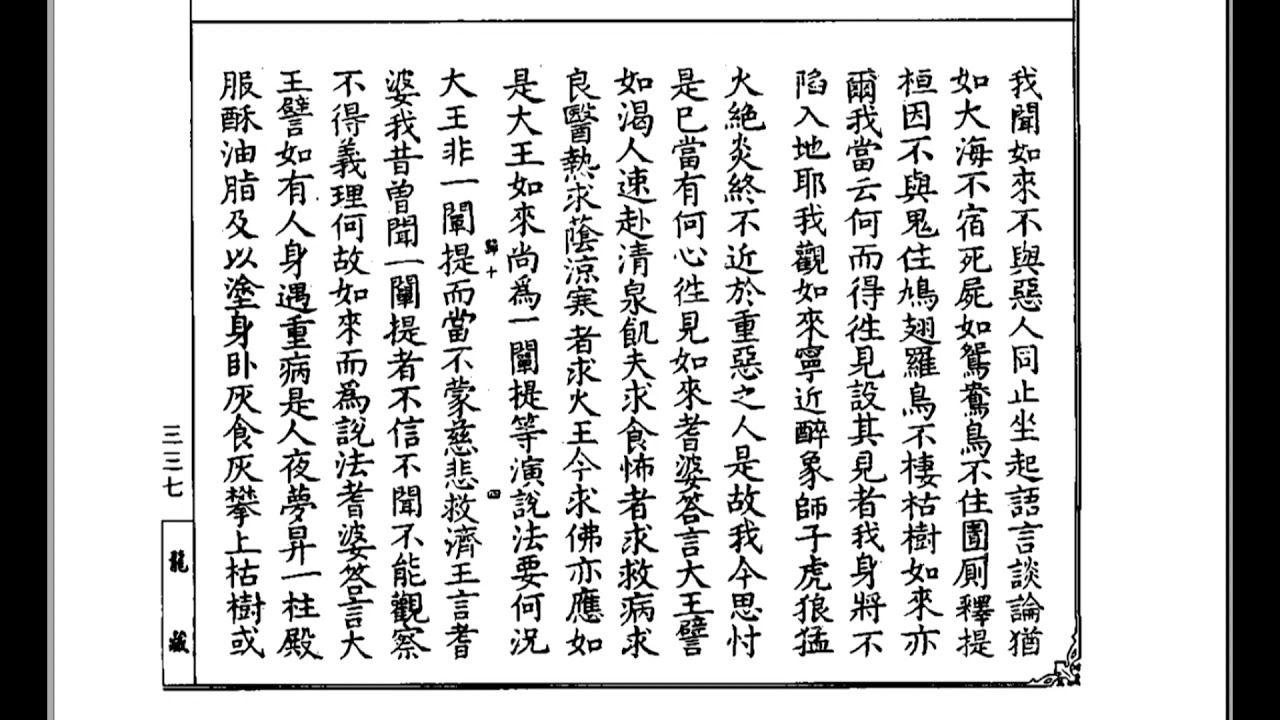 我聞如來不與惡人同止坐起語言談論猶
如大海不宿死屍如鴛鴦鳥不住圊厠釋提
桓因不與鬼住鳩翅羅鳥不棲枯樹如來亦
爾我當云何而得徃見設其見者我身將不
陷入地耶我觀如來寧近醉象師子虎狼猛
火絶炎終不近於重惡之人是故我今思忖
是已當有何心徃見如來耆婆答言大王譬
如渴人速赴清泉飢夫求食怖者求救病求
良醫熱求蔭涼寒者求火王今求佛亦應如
是大王如來尚爲一闡提等演說法要何況
歸十
四
大王非一闡提而當不蒙慈悲救濟王言耆
婆我昔曾聞一闡提者不信不聞不能觀察
不得義理何故如來而爲說法耆婆答言大
王譬如有人身遇重病是人夜夢昇一柱殿
服酥油脂及以塗身卧灰食灰攀上枯樹或
三三七
龍藏